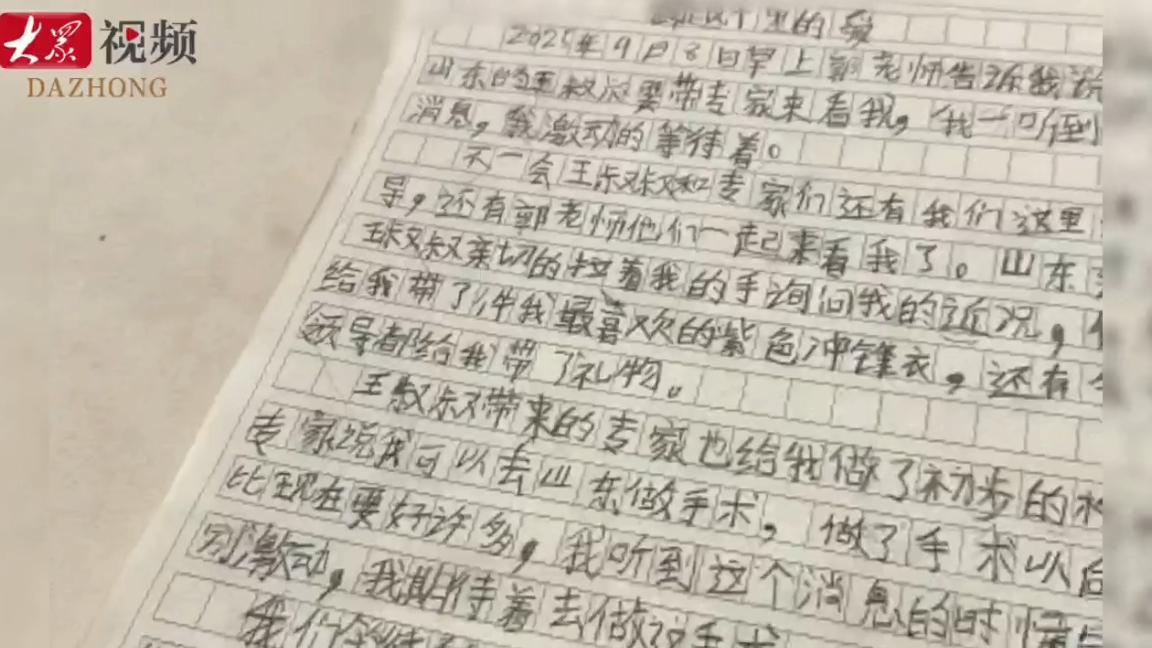 大众视频
DAZHONG
里的爱
2025年9月8日早上郭老师告诉我说
山东的王叔叔要带专家来看我，我一听到
消息，我激动的等待着。
不一会王叔叔和专家们还有我们这里
导，还有郭老师他们一起来看我了。山东
王叔叔亲切的拉着我的手询问我的近况，
给我带了件我最喜欢的紫色冲锋衣，还有
领导都给我带了礼物。
王叔叔带来的专家也给我做了初步的检
专家说我可以去山东做手术，做了手术以后
比现在要好许多，我听到这个消息的时候
别激动，我期待着去做这手术
我们